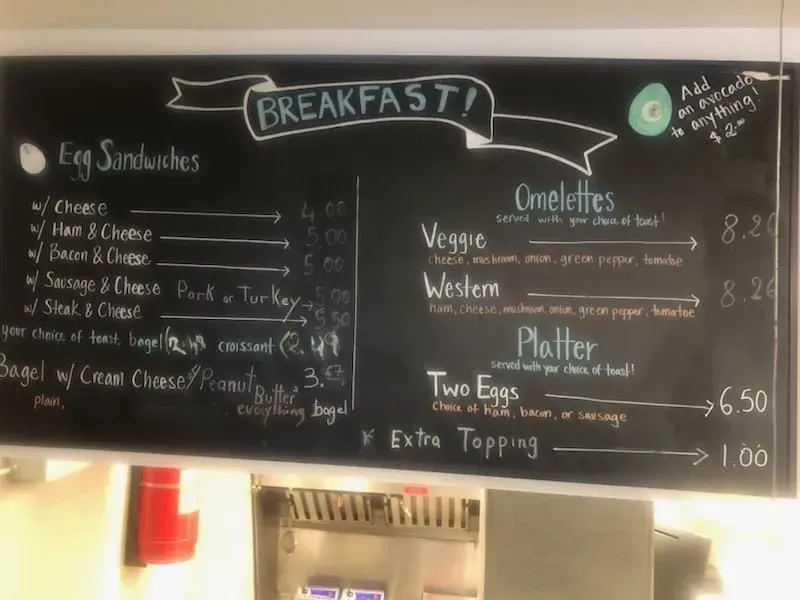 BREAKFAST!
Add
an avocado
to anything!
$2.00
Egg Sandwiches
w/ Cheese 4.00
w/ Ham & Cheese 5.00
w/ Bacon & Cheese 5.00
w/ Sausage & Cheese Pork or Turkey 5.00
w/ Steak & Cheese 5.50
your choice of toast, bagel croissant (2.49
Bagel w/ Cream Cheese/Peanut 3.
Butter
plain, everything bagel
Omelettes
served with your choice of toast!
Veggie 8.26
cheese, mushroom, onion, green pepper, tomatoe
Western 8.26
ham, cheese, mushroom, onion, green pepper, tomatoe
Platter
served with your choice of toast!
Two Eggs 6.50
choice of ham, bacon, or sausage
* Extra Topping 1.00